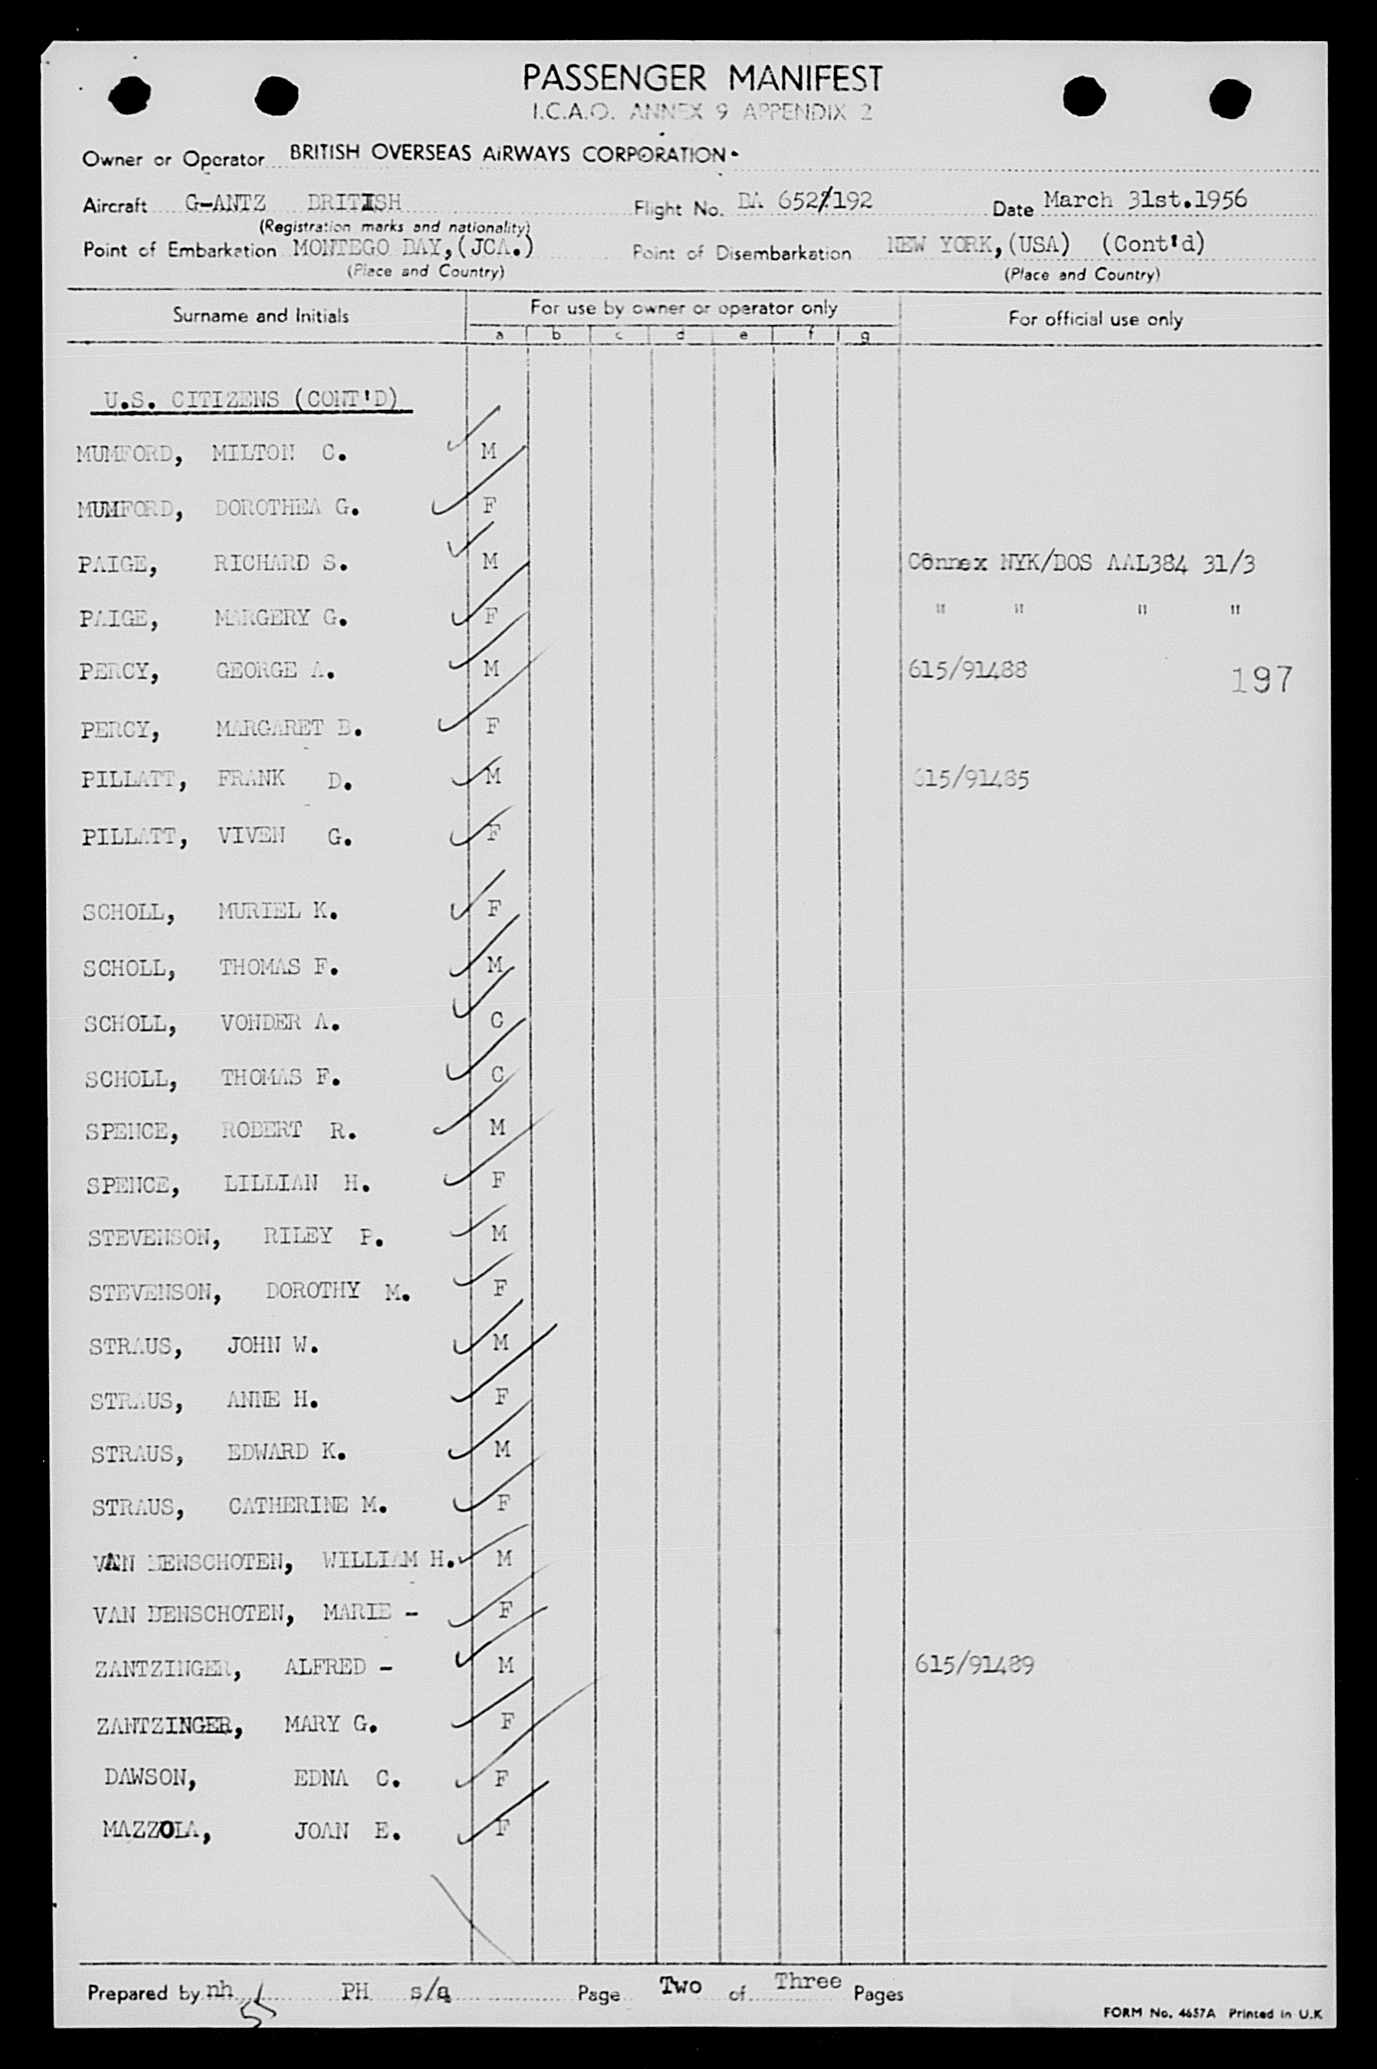 PASSENGER MANIFEST
I.C.A.O. ANNEX 9 APPENDIX 2
Owner or Operator BRITISH OVERSEAS AIRWAYS CORPORATION
Aircraft G-ANTZ BRITISH Flight No. BA 652/192 Date March 31st.1956
(Registration marks and nationality)
Point of Embarkation MONTEGO BAY,(JCA.) Point of Disembarkation NEW YORK,(USA) (Cont'd)
(Place and Country) (Place and Country)
Surname and Initials For use by owner or operator only For official use only
a b c d e f g
U.S. CITIZENS (CONT'D)
MUMFORD, MILTON C. M
MUMFORD, DOROTHEA G. F
PAIGE, RICHARD S. M Connex NYK/BOS AAL384 31/3
PAIGE, MARGERY G. F " " " "
PERCY, GEORGE A. M 615/91488 197
PERCY, MARGARET B. F
PILLATT, FRANK D. M 615/91485
PILLATT, VIVEN G. F
SCHOLL, MURIEL K. F
SCHOLL, THOMAS F. M
SCHOLL, VONDER A. C
SCHOLL, THOMAS F. C
SPENCE, ROBERT R. M
SPENCE, LILLIAN H. F
STEVENSON, RILEY P. M
STEVENSON, DOROTHY M. F
STRAUS, JOHN W. M
STRAUS, ANNE H. F
STRAUS, EDWARD K. M
STRAUS, CATHERINE M. F
VAN BENSCHOTEN, WILLIAM H. M
VAN BENSCHOTEN, MARIE - F
ZANTZINGER, ALFRED - M 615/91489
ZANTZINGER, MARY G. F
DAWSON, EDNA C. F
MAZZOLA, JOAN E. F
Prepared by nh PH s/a Page Two of Three Pages
FORM No. 4657A Printed in U.K